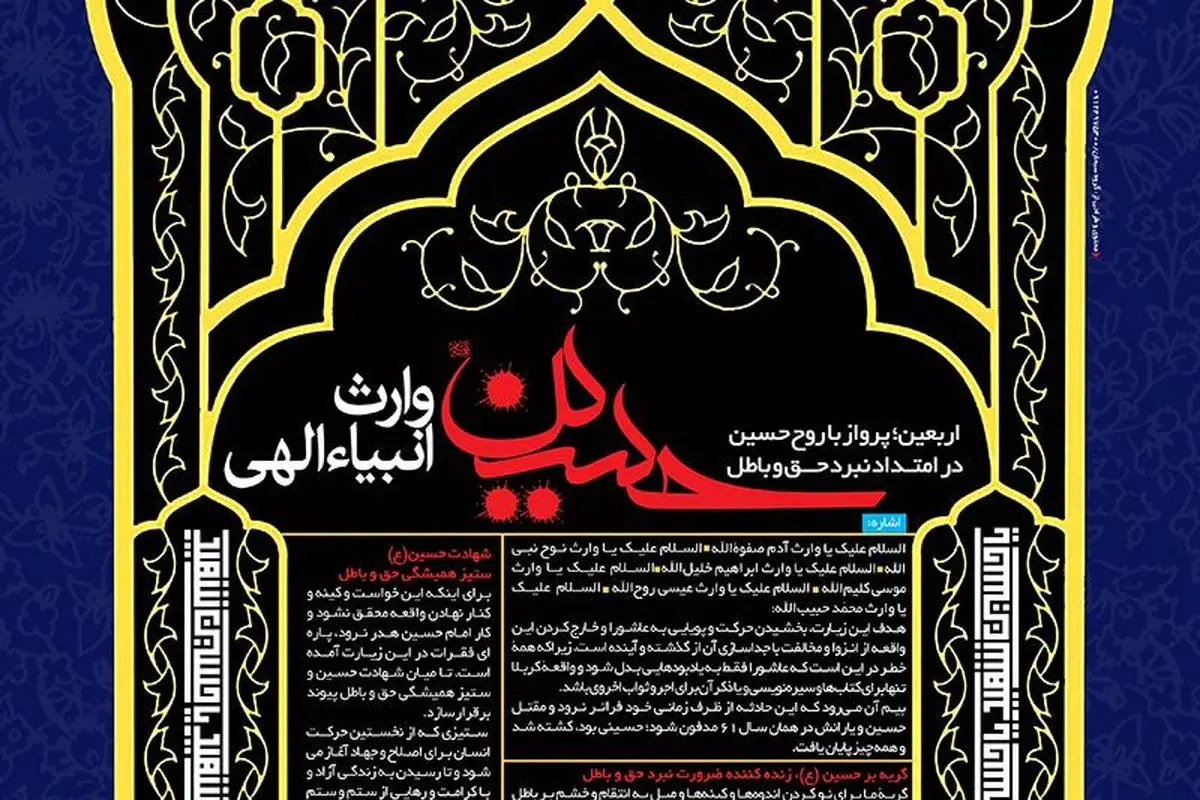 حسین
وارث
انبیاء الهی
اربعین؛ پرواز با روح حسین
در امتداد نبرد حق و باطل
اشاره:
السلام علیک یا وارث آدم صفوةالله ▪ السلام علیک یا وارث نوح نبی
الله ▪ السلام علیک یا وارث ابراهیم خلیل‌الله ▪ السلام علیک یا وارث
موسی کلیم‌الله ▪ السلام علیک یا وارث عیسی روح‌الله ▪ السلام علیک
یا وارث محمّد حبیب‌الله:
هدف این زیارت، بخشیدن حرکت و پویایی به عاشورا و خارج کردن این
واقعه از انزوا و مخالفت با جداسازی آن از گذشته و آینده است، زیرا که همهٔ
خطر در این است که عاشورا فقط به یادبودهایی بدل شود و واقعهٔ کربلا
تنها برای کتاب‌ها و سیره‌نویسی و یا ذکر آن برای اجر و ثواب اخروی باشد.
بیم آن می‌رود که این حادثه از ظرف زمانی خود فراتر نرود و مقتل
حسین و یارانش در همان سال ۶۱ مدفون شود؛ حسینی بود، کشته شد
و همه چیز پایان یافت.
گریه بر حسین (ع)، زنده کننده ضرورت نبرد حق و باطل
گریهٔ ما برای نو کردن اندوه‌ها و کینه‌ها و میل به انتقام و خشم بر باطل
شهادت حسین(ع)
ستیز همیشگی حق و باطل
برای اینکه این خواست و کینه و
کنار نهادن واقعه محقق نشود و
کار امام حسین هدر نرود، پاره
ای فقرات در این زیارت آمده
است، تا میان شهادت حسین و
ستیز همیشگی حق و باطل پیوند
برقرار سازد.
ستیزی که از نخستین حرکت
انسان برای اصلاح و جهاد آغاز می
شود و تا رسیدن به زندگی آزاد و
با کرامت و رهایی از ستم و ستم